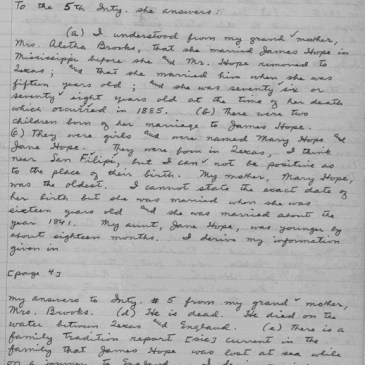 To the 5th Inty. she answers:
(a) I understood from my grand mother,
Mrs. Aletha Brooks, that she married James Hope in
Mississippi before she and Mr. Hope removed to
Texas; and that she married him when she was
fifteen years old; and she was seventy six or
seventy eight years old at the time of her death
which occurred in 1865. (b) There were two
children born of her marriage to James Hope.
(c) They were girls and were named Mary Hope and
Jane Hope. They were born in Texas, I think
near San Filipi, but I can not be positive as
to the place of their birth. My mother, Mary Hope,
was the oldest. I cannot state the exact date of
her birth but she was married when she was
sixteen years old and she was married about the
year 1841. My aunt, Jane Hope, was younger by
about eighteen months. I derive my information
given in
[page 4]
my answers to Inty. #5 from my grand mother,
Mrs. Brooks. (d) He is dead. He died on the
water between Texas and England. (e) There is a
family tradition report [sic] current in the
family that James Hope was lost at sea while
on a journey to England. I